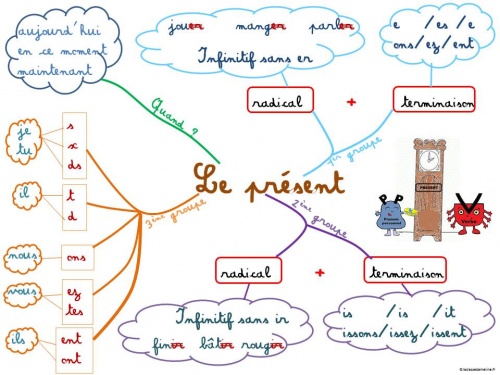 aujourd'hui
en ce moment
maintenant
jouer manger parler
Infinitif sans er
e /es /e
ons/ez/ent
radical + terminaison
Quand ?
1er groupe
Le présent
je
tu
s
x
ds
il
t
d
nous
ons
vous
ez
tes
ils
ent
ont
3ème groupe
2ème groupe
PRESENT
P P
Pronom
personnel
V
Verbe
radical + terminaison
Infinitif sans ir
finir bâtir rougir
is /is /it
issons/issez/issent